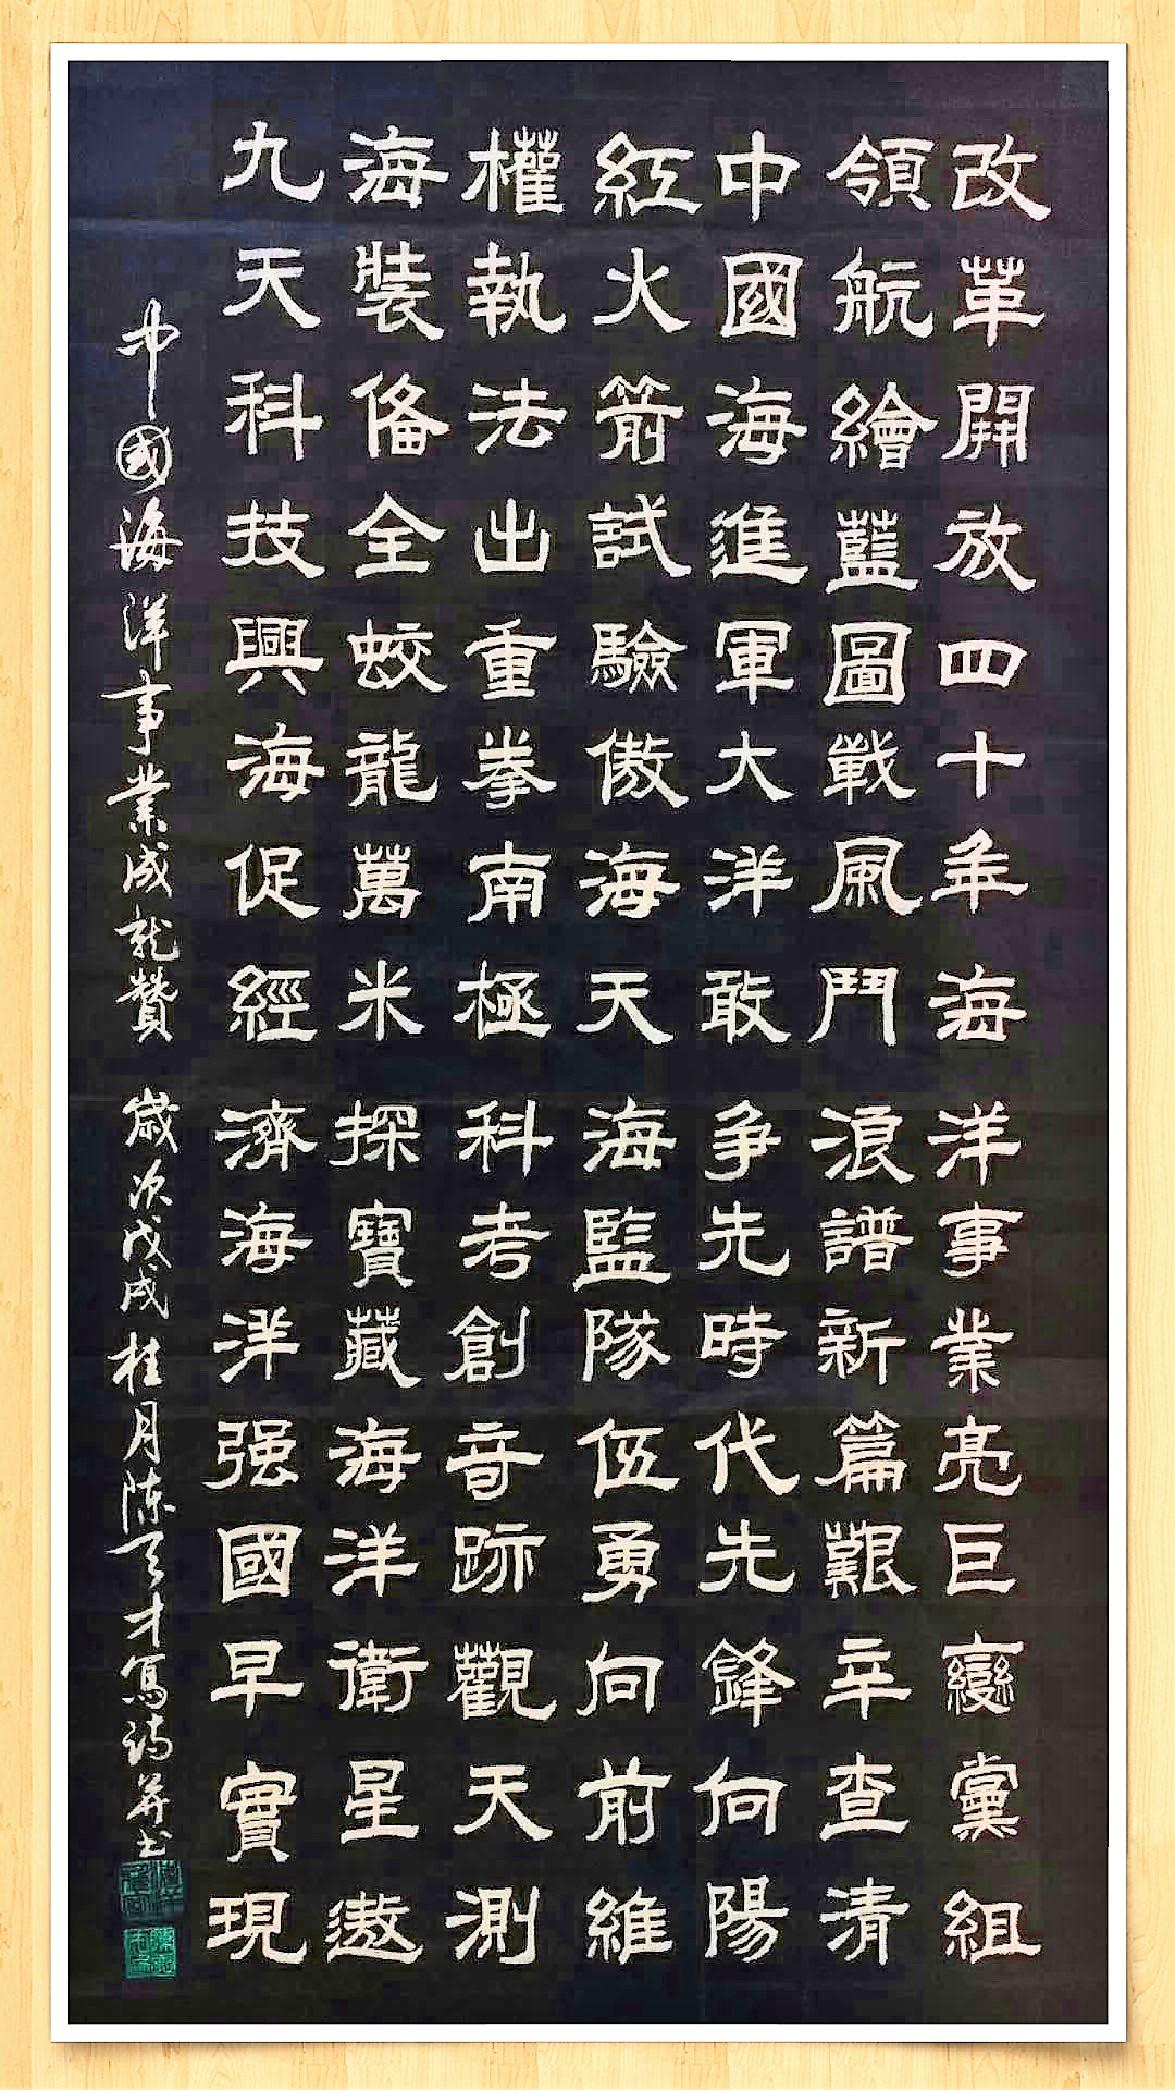 改革開放四十年海洋事業亮巨變黨組
領航繪藍圖戰風鬥浪譜新篇艱辛查清
中國海進軍大洋敢争先時代先鋒向陽
紅火箭試驗傲海天海監隊伍勇向前維
權執法出重拳南極科考創奇跡觀天測
海裝俻全蛟龍萬米探寶藏海洋衛星遨
九天科技興海促經濟海洋强國早實現
中國海洋事業成就贊 歲次戊戌桂月陈天才寫诗并书